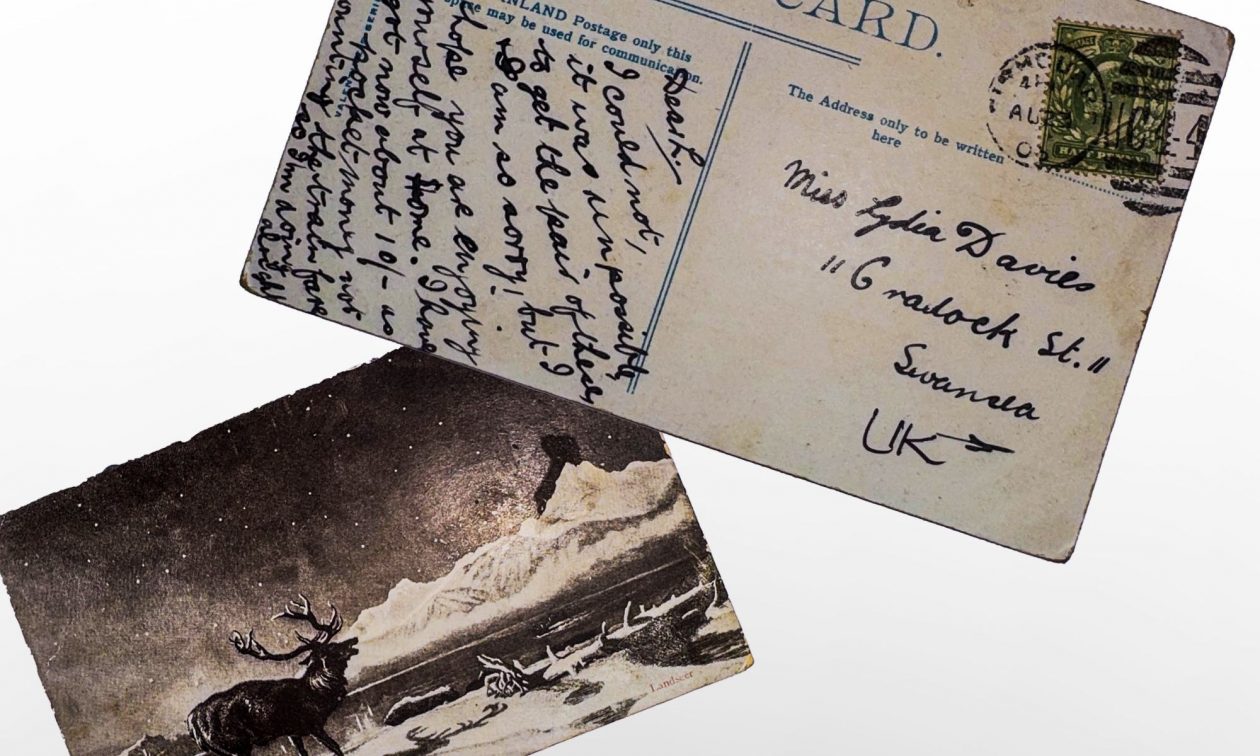 CARD.
INLAND Postage only this
space may be used for communication.
Dear L.
I could not,
it was unpossible
to get the pair of these
I am so sorry! but I
hope you are enjoying
yourself at home. I have
got now about 10/- as
pocket-money not
counting the train fare
so I'm doing
alright
The Address only to be written
here
Miss Lydia Davies
"Cradock St."
Swansea
UK
AU
HALF PENNY
Landseer